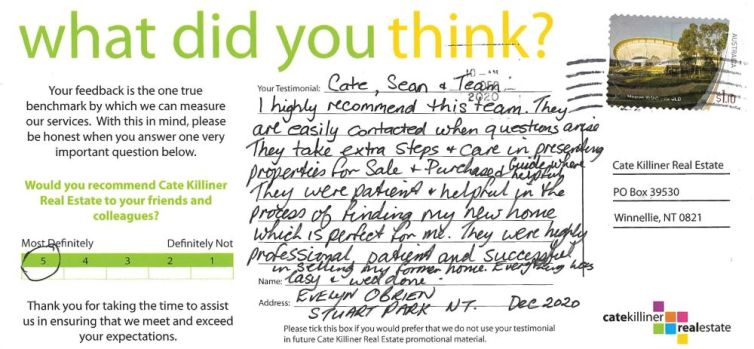 what did you think?
Your feedback is the one true
benchmark by which we can measure
our services. With this in mind, please
be honest when you answer one very
important question below.
Would you recommend Cate Killiner
Real Estate to your friends and
colleagues?
Most Definitely Definitely Not
5 4 3 2 1
Thank you for taking the time to assist
us in ensuring that we meet and exceed
your expectations.
Your Testimonial: Cate, Sean & Team -
I highly recommend this team. They
are easily contacted when questions arise
They take extra steps & care in presenting
properties for Sale & Purchase & Guide where helpful
They were patient & helpful in the
process of finding my new home
which is perfect for me. They were highly
professional, patient and successful
in selling my former home. Everything was
Name: easy & well done.
Address: EVELYN OBRIEN
STUART PARK NT. Dec 2020
Please tick this box if you would prefer that we do not use your testimonial
in future Cate Killiner Real Estate promotional material.
2020
AUSTRALIA
$1.10
Cate Killiner Real Estate
PO Box 39530
Winnellie, NT 0821
catekilliner
realestate